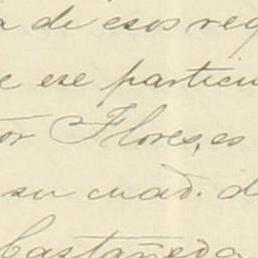 a de esos req
e ese particu
or Flores, es
su cuad. d
Castañeda